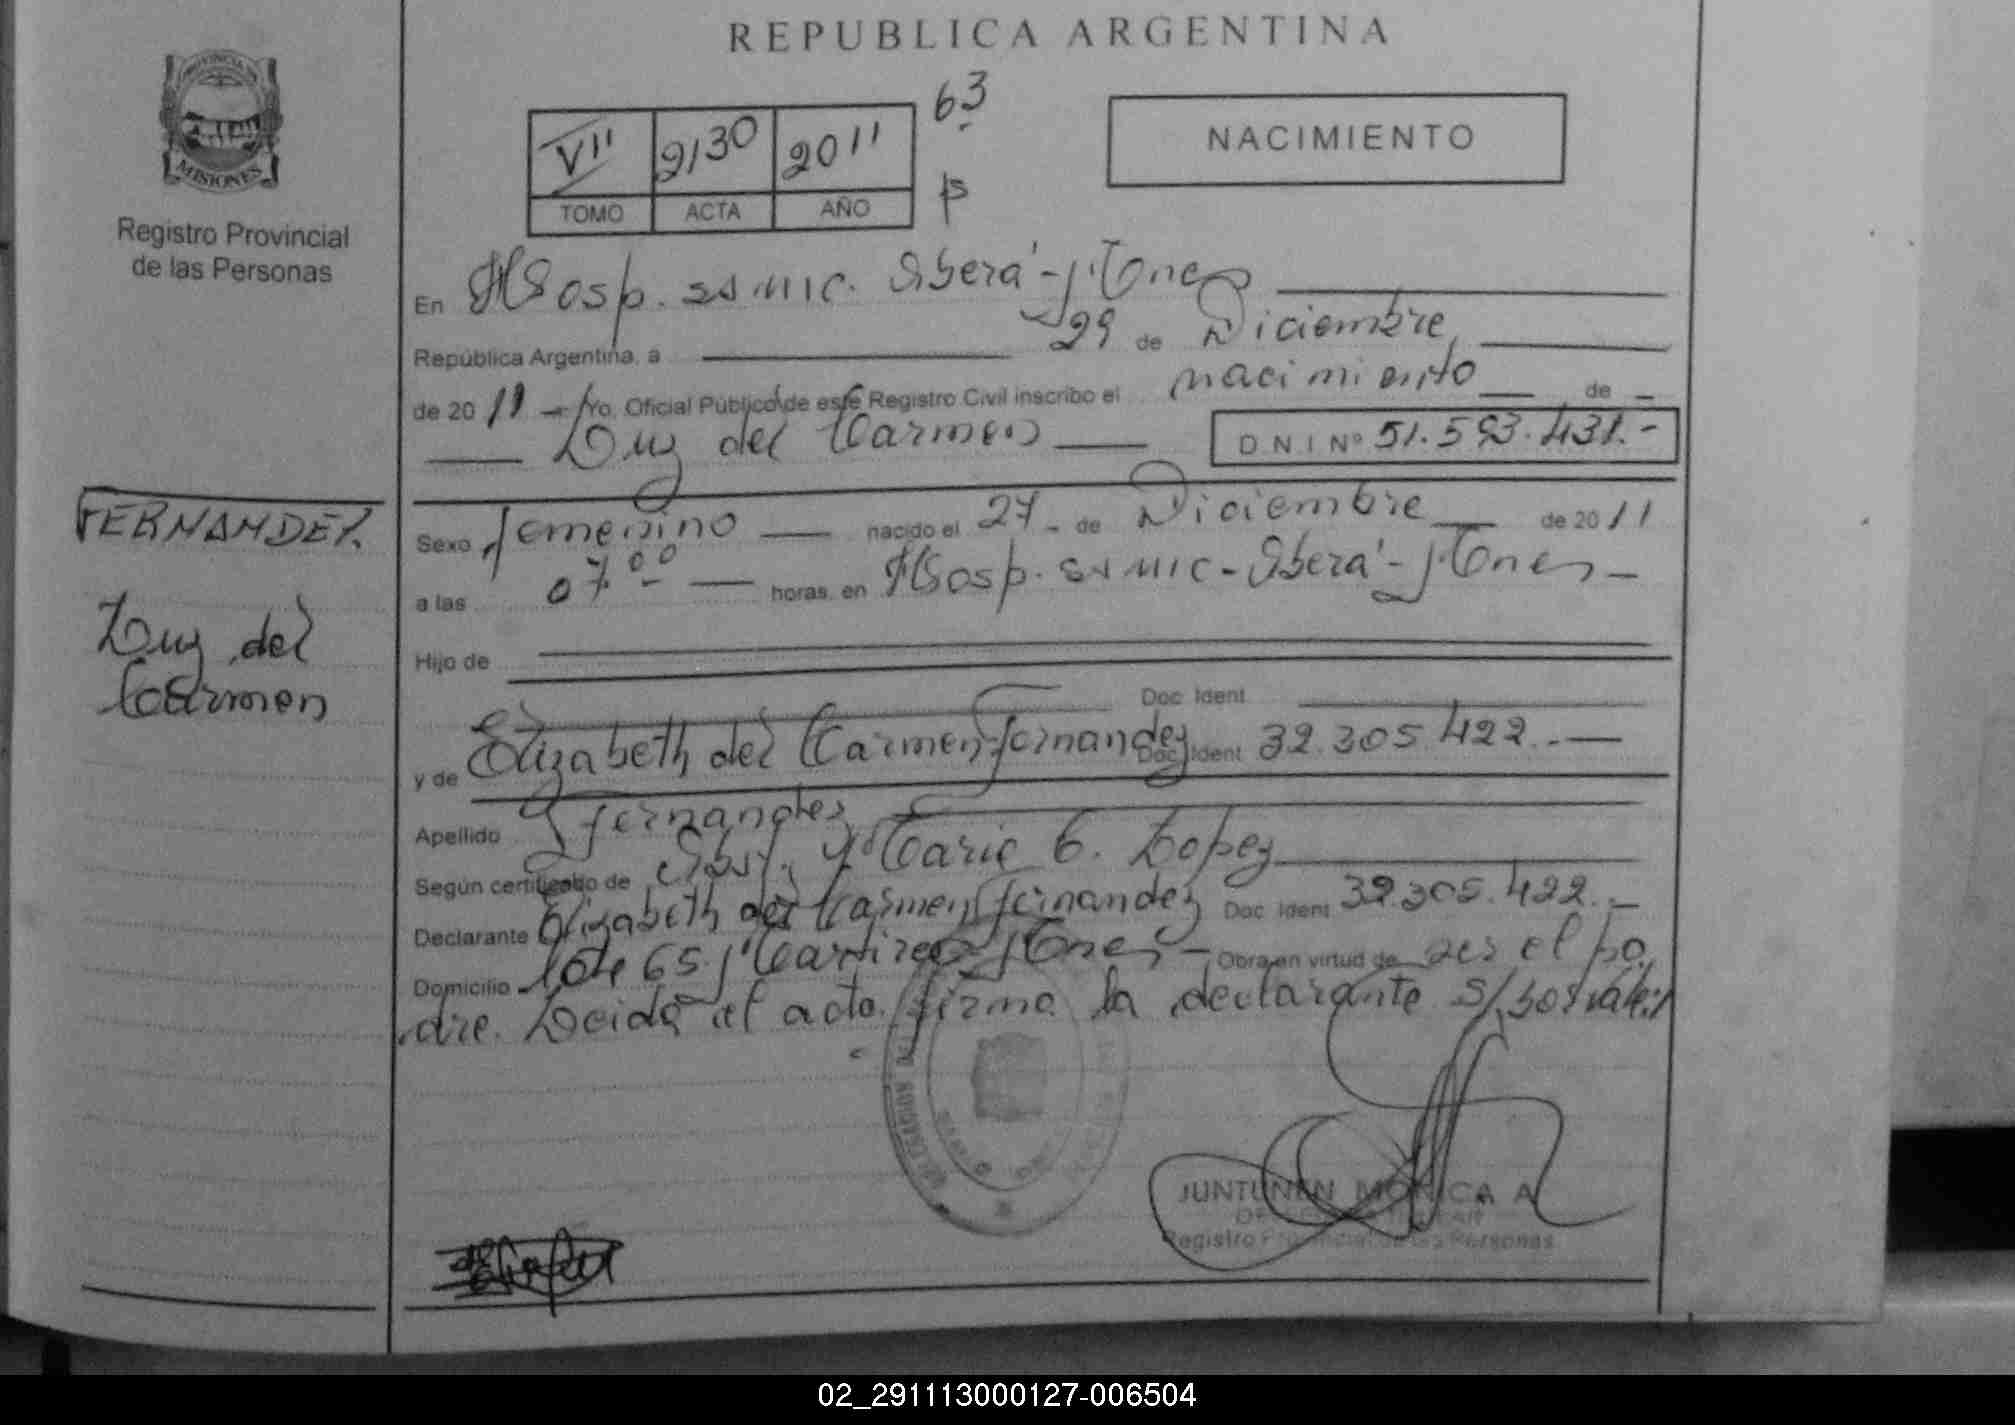 REPUBLICA ARGENTINA
63
VII 2130 2011
TOMO ACTA AÑO
NACIMIENTO
PROVINCIA DE
MISIONES
Registro Provincial
de las Personas
En Hosp. SSMIC. Iberá - Mnes
República Argentina, a 29 de Diciembre
de 2011 Yo, Oficial Público de este Registro Civil inscribo el nacimiento de
Luz del Carmen D N I Nº 51.593.431.-
FERNANDEZ
Luz del
Carmen
Sexo femenino nacido el 27 de Diciembre de 2011
a las 07.00 horas, en Hosp. SSMIC - Iberá - Mnes
Hijo de
Doc Ident
y de Elizabeth del Carmen Fernandez Doc Ident 32.305.422.-
Apellido Fernandez
Según certificado de Obst. Maria E. Lopez
Declarante Elizabeth del Carmen Fernandez Doc Ident 32.305.422.-
Domicilio Lote 65 Martires Mnes - Obra en virtud de ser
dre. Leida el acta firma la declarante
DELEGACION
JUNTUNEN MONICA A
Registro Provincial de las Personas
02_291113000127-006504